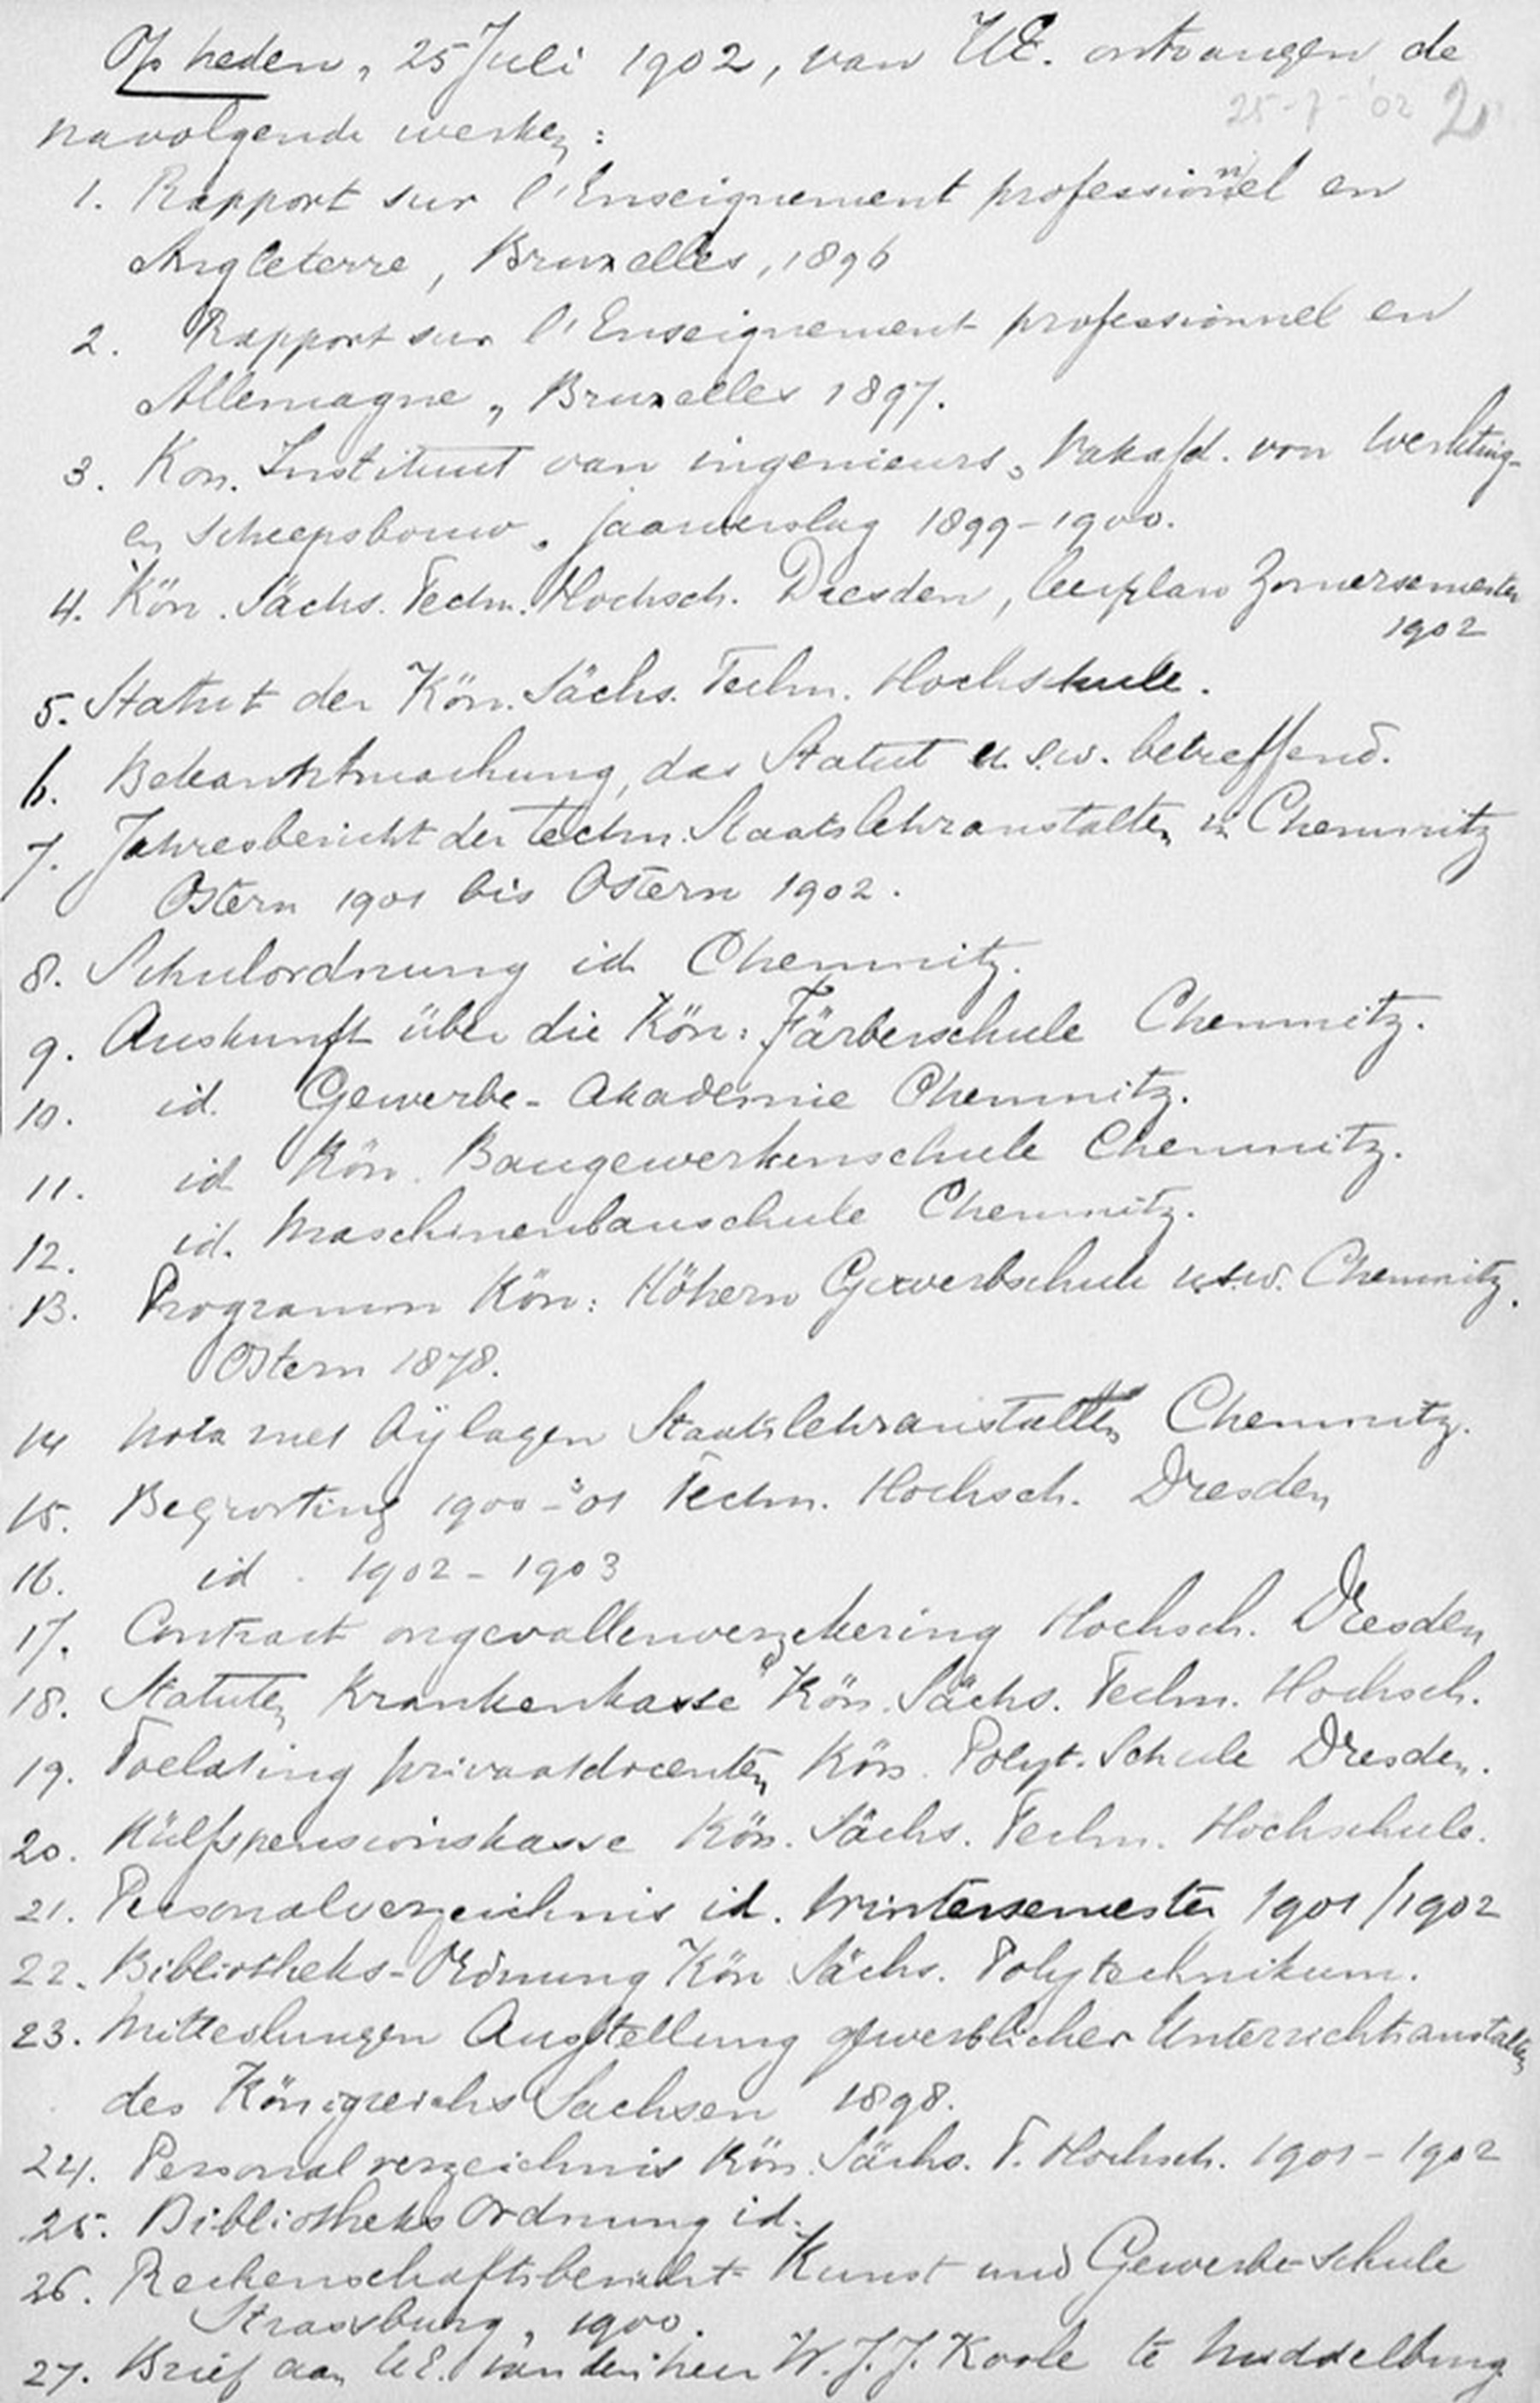 Op heden, 25 Juli 1902, van UE. ontvangen de
25-7-'02 2
navolgende werken:
1. Rapport sur l'Enseignement professionnel en
Angleterre, Bruxelles, 1896
2. Rapport sur l'Enseignement professionnel en
Allemagne, Bruxelles 1897.
3. Kon. Instituut van ingenieurs, Vakafd. von Werktuig-
en Scheepsbouw, jaarverslag 1899-1900.
4. Kön. Sächs. Techn. Hochsch. Dresden, leerplan Zomersemester
1902
5. Statut der Kön. Sächs. Techn. Hochschule.
6. Bekanntmachung, das Statut u.s.w. betreffend.
7. Jahresbericht der techn. Staatslehranstalten in Chemnitz
Ostern 1901 bis Ostern 1902.
8. Schulordnung id Chemnitz.
9. Auskunft über die Kön: Färberschule Chemnitz.
10. id. Gewerbe-Akademie Chemnitz.
11. id Kön. Baugewerkenschule Chemnitz.
12. id. Maschinenbauschule Chemnitz.
13. Programm Kön: Höhern Gewerbschule u.s.w. Chemnitz.
Ostern 1878.
14 Nota met bijlagen Staatslehranstalten Chemnitz.
15. Begrooting 1900-'01 Techn. Hochsch. Dresden
16. id. 1902-1903
17. Contract ongevallenverzekering Hochsch. Dresden
18. Statuten Krankenkasse Kön. Sächs. Techn. Hochsch.
19. Toelating privaatdocenten Kön. Polyt. Schule Dresden.
20. Hülfspensionskasse Kön. Sächs. Techn. Hochschule.
21. Personalverzeichnis id. Wintersemester 1901/1902
22. Bibliotheks-Ordnung Kön Sächs. Polytechnikum.
23. Mitteilungen Austellung gewerblicher Unterrichtsanstalten
des Königreichs Sachsen 1898.
24. Personalverzeichnis Kön. Sächs. T. Hochsch. 1901-1902
25. Bibliotheks Ordnung id.
26. Rechenschaftsbericht Kunst und Gewerbe-Schule
Strassburg, 1900.
27. Brief aan UE. van den heer W.J.J. Koole te Middelburg